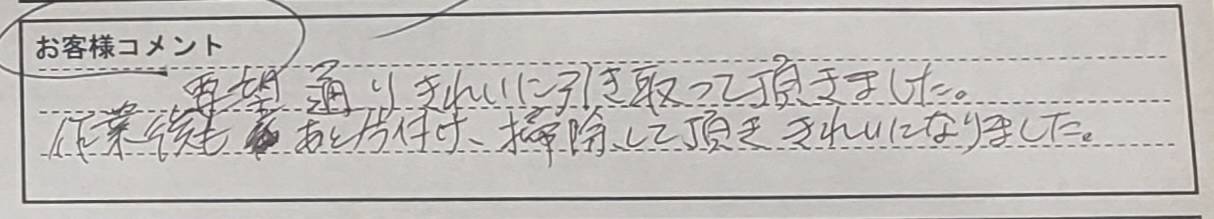 お客様コメント
要望通りきれいに引き取って頂きました。
作業後もあと片付け、掃除して頂ききれいになりました。